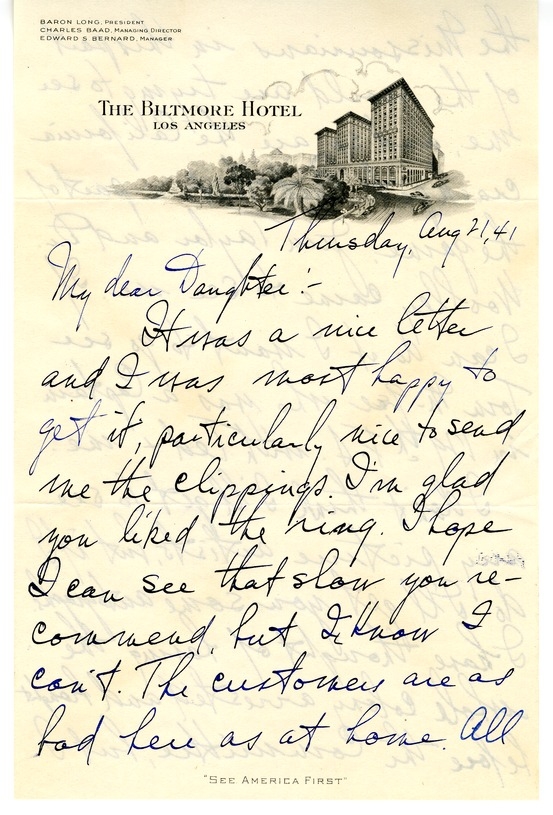 BARON LONG, PRESIDENT
CHARLES BAAD, MANAGING DIRECTOR
EDWARD S BERNARD, MANAGER
THE BILTMORE HOTEL
LOS ANGELES
Thursday, Aug 21, 41
My dear Daughter:-
It was a nice letter
and I was most happy to
get it, particularly nice to send
me the clippings. I'm glad
you liked the ring. I hope
I can see that show you re-
commend, but I know I
can't. The customers are as
bad here as at home. All
"SEE AMERICA FIRST"